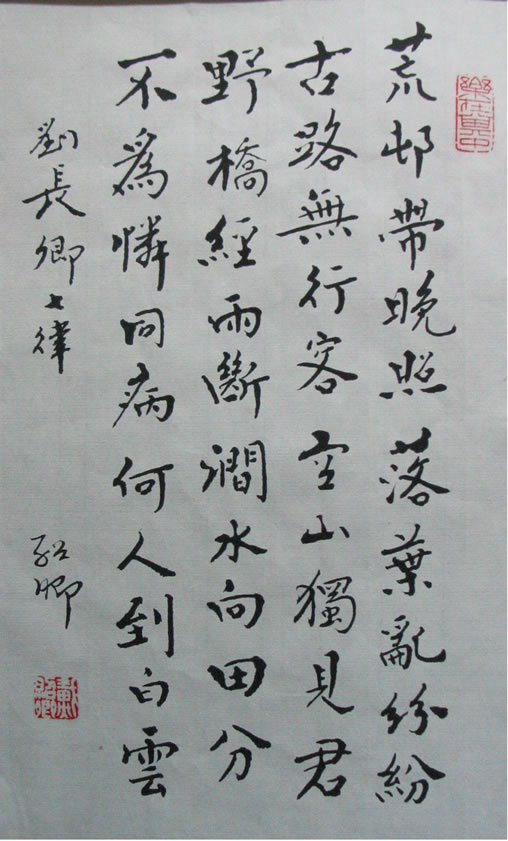 樂在其中
荒邨帶晚照落葉亂紛紛
古路無行客空山獨見君
野橋經雨斷澗水向田分
不爲憐同病何人到白雲
劉長卿七律